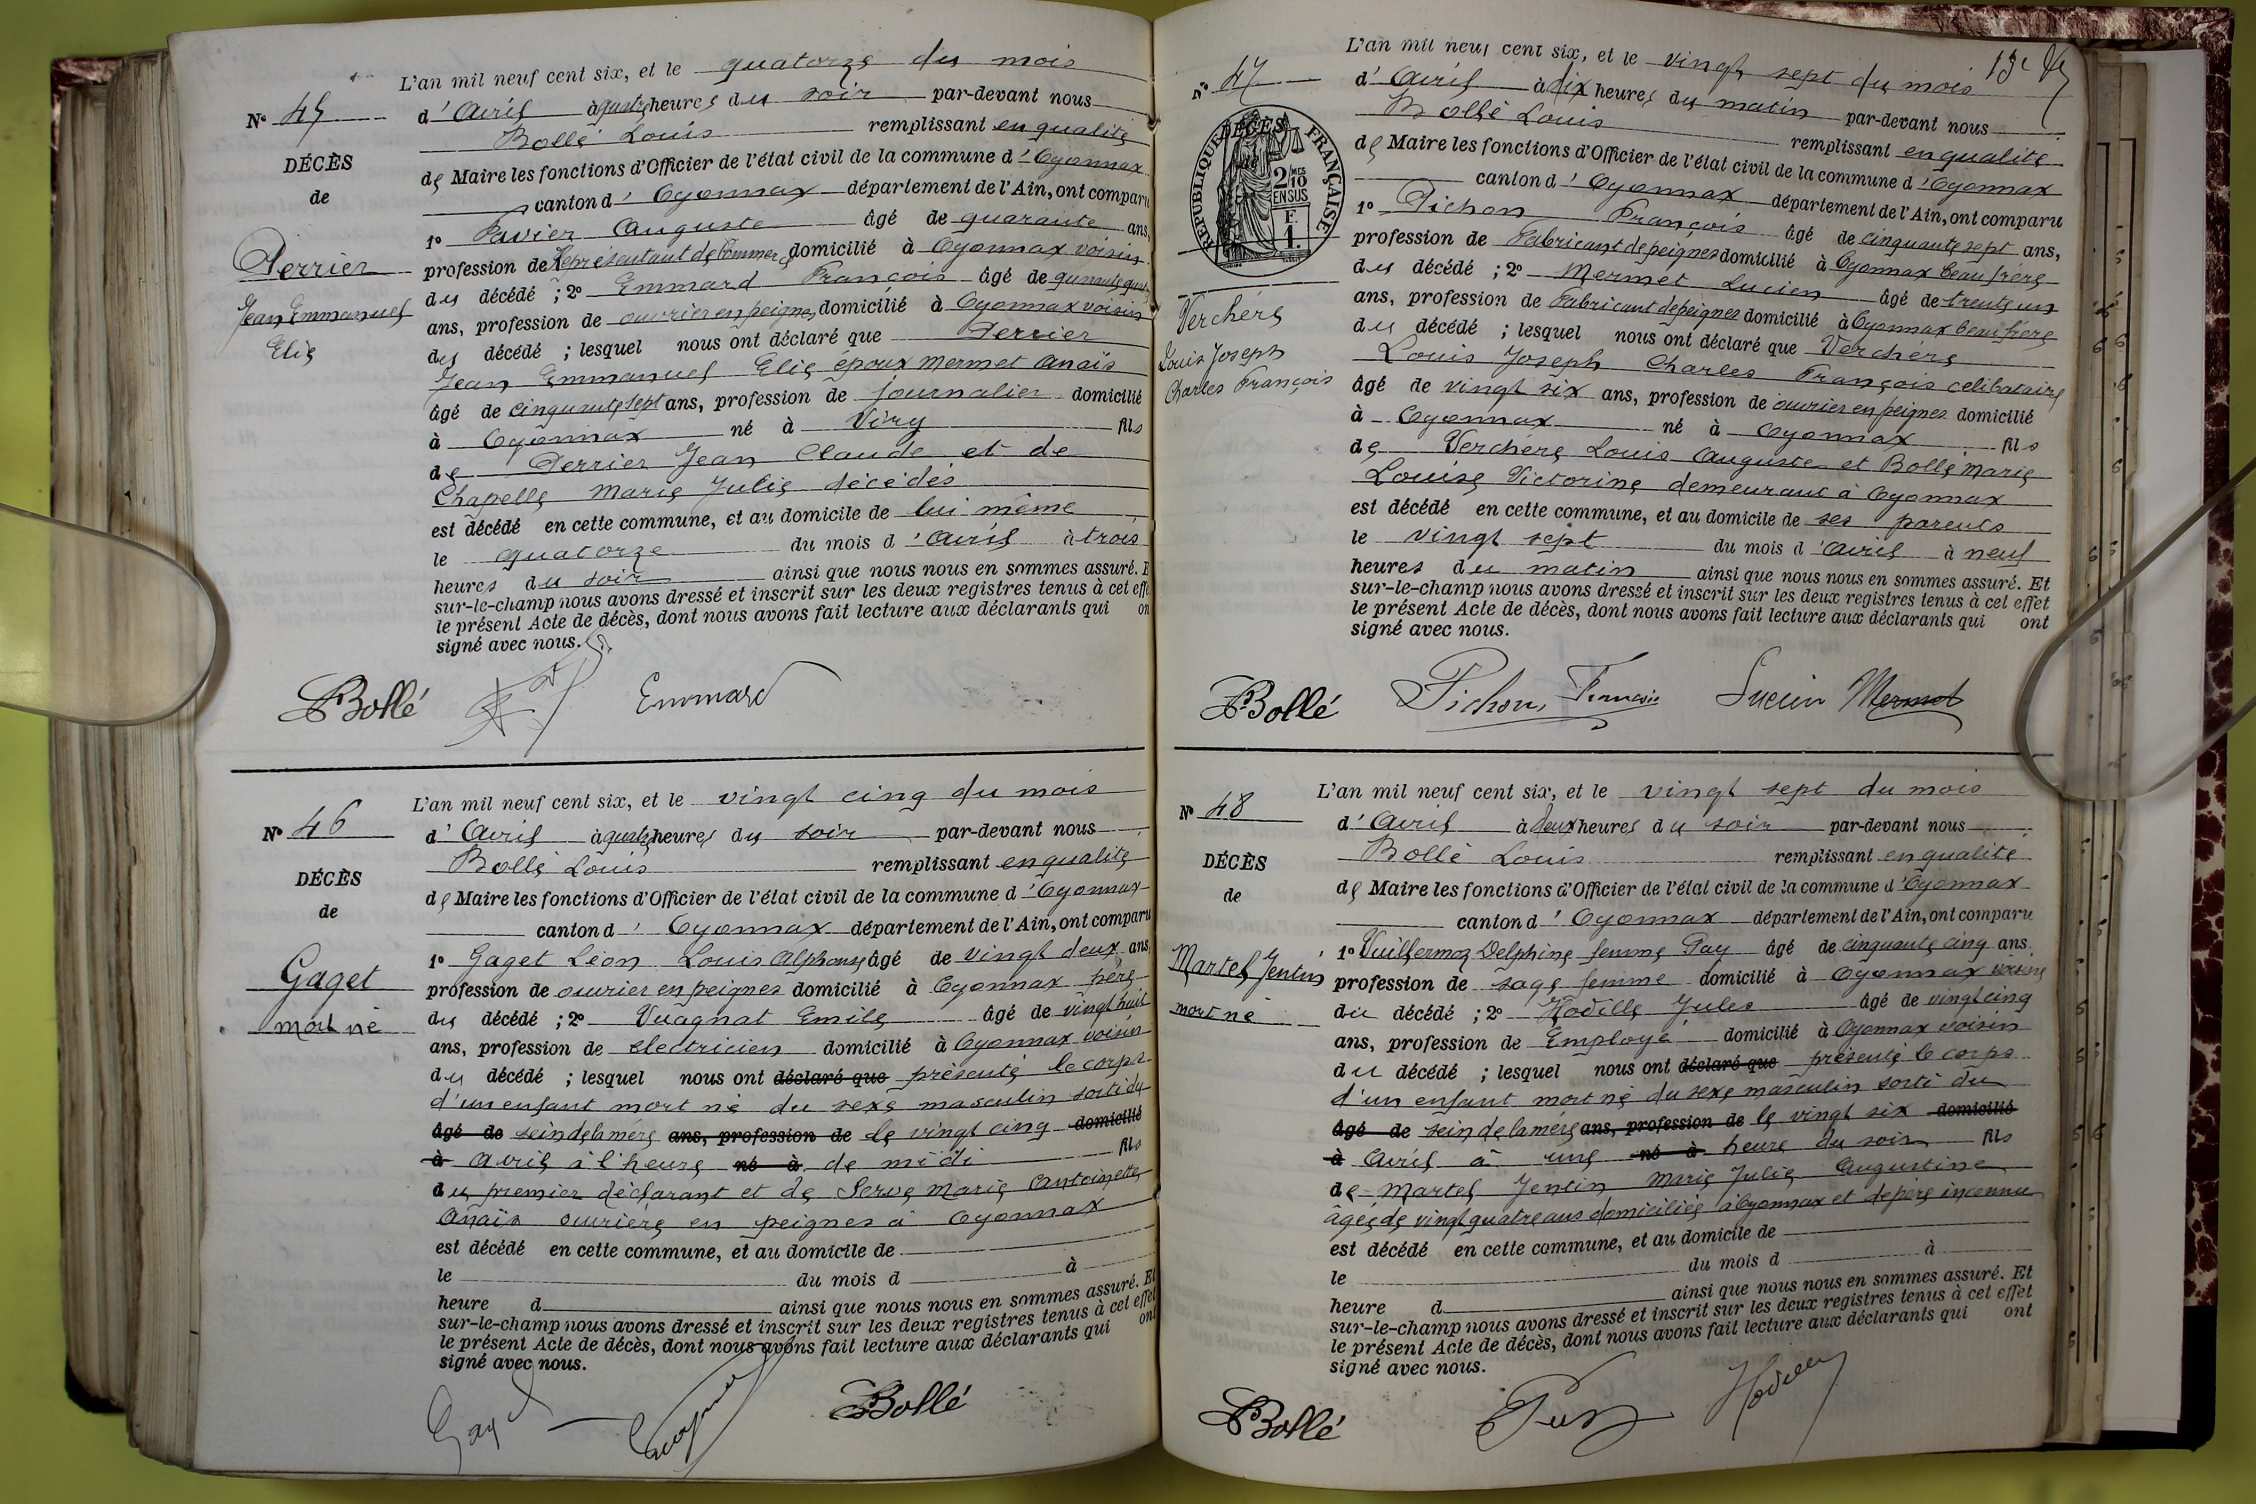 L'an mil neuf cent six, et le quatorze du mois
N° 45
d'Avril à quatre heures du soir par-devant nous
Bollé Louis remplissant en qualité
DÉCÈS
de Maire les fonctions d'Officier de l'état civil de la commune d'Oyonnax
de
canton d'Oyonnax département de l'Ain, ont comparu
1° Favier Auguste âgé de quarante ans,
Perrier
profession de Représentant de Commerce domicilié à Oyonnax voisin
Jean Emmanuel
du décédé ; 2° Emmard François âgé de quarante quatre
Elie
ans, profession de ouvrier en peignes domicilié à Oyonnax voisin
du décédé ; lesquel nous ont déclaré que Perrier
Jean Emmanuel Elie époux Mermet Anaïs
âgé de cinquante sept ans, profession de journalier domicilié
à Oyonnax né à Viry fils
de Perrier Jean Claude et de
Chapelle Marie Julie décédés
est décédé en cette commune, et au domicile de lui même
le quatorze du mois d'Avril à trois
heures du soir ainsi que nous nous en sommes assuré. E
sur-le-champ nous avons dressé et inscrit sur les deux registres tenus à cet effe
le présent Acte de décès, dont nous avons fait lecture aux déclarants qui on
signé avec nous.
Bollé Emmard
L'an mil neuf cent six, et le vingt cinq du mois
N° 46
d'Avril à quatre heures du soir par-devant nous
Bollé Louis remplissant en qualité
DÉCÈS
de Maire les fonctions d'Officier de l'état civil de la commune d'Oyonnax
de
canton d'Oyonnax département de l'Ain, ont comparu
1° Gaget Léon Louis Alphonse âgé de vingt deux ans,
Gaget
profession de ouvrier en peignes domicilié à Oyonnax père
mort né
du décédé ; 2° Vuagnat Emile âgé de vingt huit
ans, profession de électricien domicilié à Oyonnax voisin
du décédé ; lesquel nous ont déclaré que présenté le corps
d'un enfant mort né du sexe masculin sorti du
âgé de sein de la mère ans, profession de le vingt cinq domicilié
à Avril à l'heure né à de midi fils
du premier déclarant et de Serve Marie Antoinette
Anaïs ouvrière en peignes à Oyonnax
est décédé en cette commune, et au domicile de
le du mois d à
heure d ainsi que nous nous en sommes assuré. Et
sur-le-champ nous avons dressé et inscrit sur les deux registres tenus à cet effet
le présent Acte de décès, dont nous avons fait lecture aux déclarants qui ont
signé avec nous.
Gaget Vuagnat Bollé
L'an mil neuf cent six, et le vingt sept du mois
N° 47
d'Avril à dix heures du matin par-devant nous
Bollé Louis remplissant en qualité
RÉPUBLIQUE FRANÇAISE
DÉCÈS
2/10 MES
EN SUS
F.
1.
de Maire les fonctions d'Officier de l'état civil de la commune d'Oyonnax
canton d'Oyonnax département de l'Ain, ont comparu
1° Pichon François âgé de cinquante sept ans,
profession de Fabricant de peignes domicilié à Oyonnax beau frère
du décédé ; 2° Mermet Lucien âgé de trente un
Verchère
ans, profession de Fabricant de peignes domicilié à Oyonnax beau frère
du décédé ; lesquel nous ont déclaré que Verchère
Louis Joseph
Louis Joseph Charles François célibataire
Charles François
âgé de vingt six ans, profession de ouvrier en peignes domicilié
à Oyonnax né à Oyonnax fils
de Verchère Louis Auguste et Bollé Marie
Louise Victorine demeurant à Oyonnax
est décédé en cette commune, et au domicile de ses parents
le vingt sept du mois d'Avril à neuf
heures du matin ainsi que nous nous en sommes assuré. Et
sur-le-champ nous avons dressé et inscrit sur les deux registres tenus à cet effet
le présent Acte de décès, dont nous avons fait lecture aux déclarants qui ont
signé avec nous.
Bollé Pichon François Lucien Mermet
L'an mil neuf cent six, et le vingt sept du mois
N° 48
d'Avril à deux heures du soir par-devant nous
Bollé Louis remplissant en qualité
DÉCÈS
de Maire les fonctions d'Officier de l'état civil de la commune d'Oyonnax
de
canton d'Oyonnax département de l'Ain, ont comparu
1° Vuillermoz Delphine femme Pay âgé de cinquante cinq ans
Martel Jentin
profession de sage femme domicilié à Oyonnax voisine
mort né
du décédé ; 2° Hodille Jules âgé de vingt cinq
ans, profession de Employé domicilié à Oyonnax voisin
du décédé ; lesquel nous ont déclaré que présenté le corps
d'un enfant mort né du sexe masculin sorti du
âgé de sein de la mère ans, profession de le vingt six domicilié
à Avril à une né à heure du soir fils
de Martel Jentin Marie Julie Augustine
âgée de vingt quatre ans domiciliée à Oyonnax et de père inconnu
est décédé en cette commune, et au domicile de
le du mois d à
heure d ainsi que nous nous en sommes assuré. Et
sur-le-champ nous avons dressé et inscrit sur les deux registres tenus à cet effet
le présent Acte de décès, dont nous avons fait lecture aux déclarants qui ont
signé avec nous.
Bollé Hodille